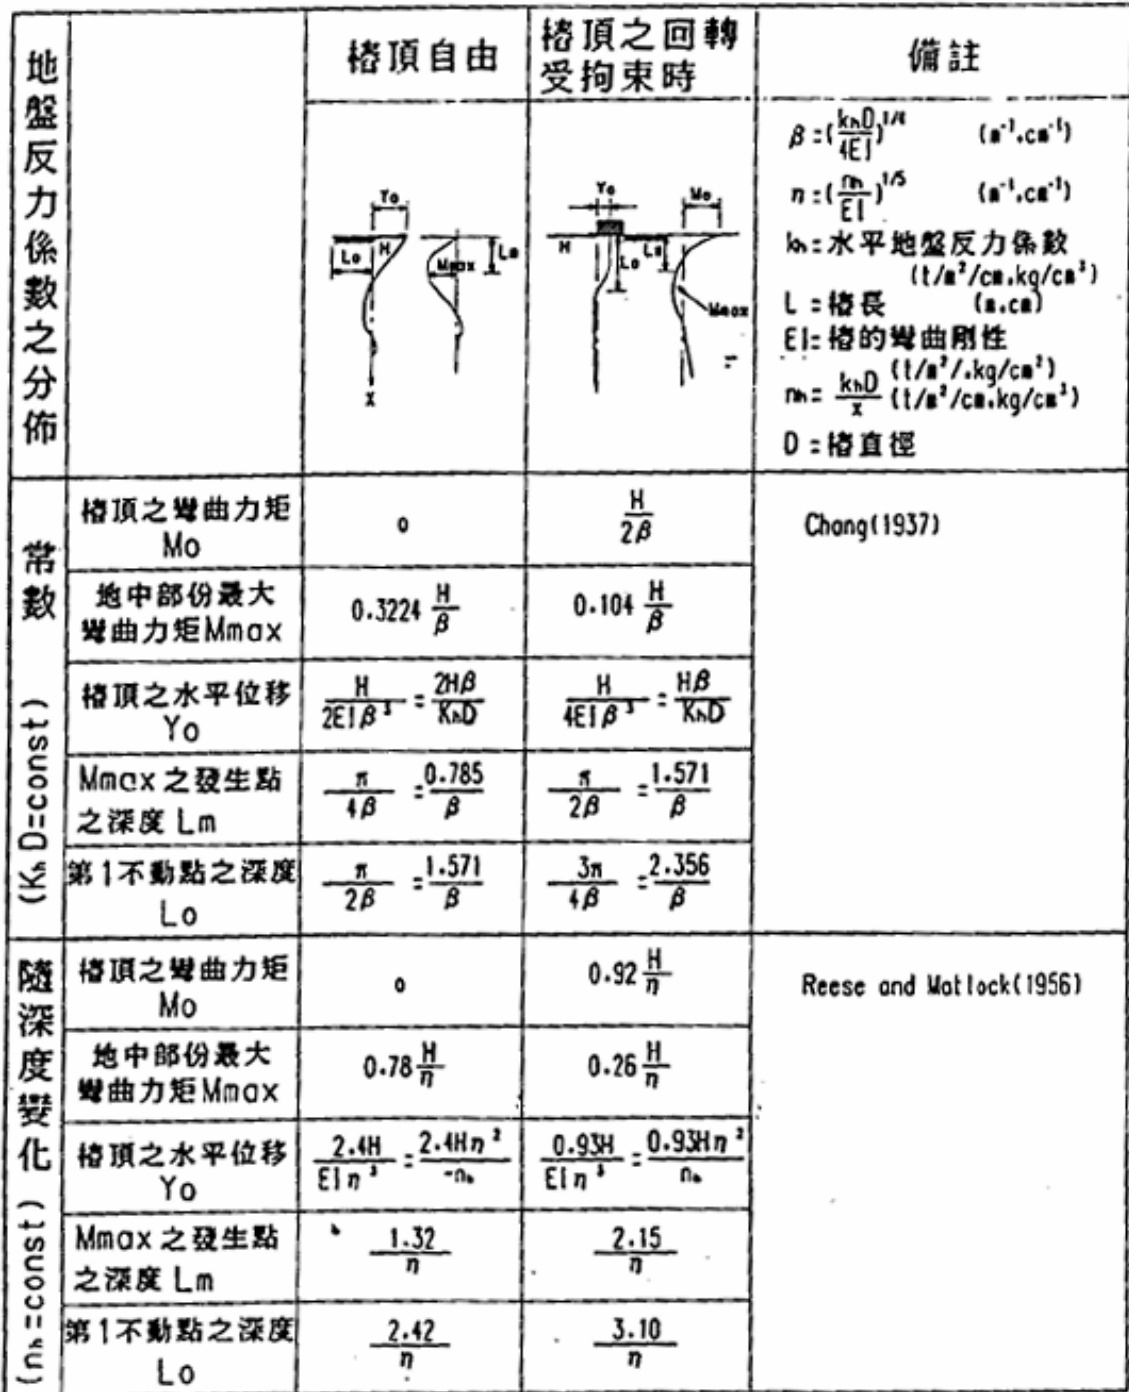 地盤反力係數之分佈
樁頂自由
樁頂之回轉
受拘束時
備註
Yo
H
Lo
Mmax
Lm
X
Yo
Mo
H
Lo
Mmax
β=(khD/4EI)^1/4 (m⁻¹.cm⁻¹)
η=(nh/EI)^1/5 (m⁻¹.cm⁻¹)
kh=水平地盤反力係數
(t/m²/cm.kg/cm³)
L=樁長 (m.cm)
EI=樁的彎曲剛性
(t/m²/.kg/cm²)
nh=khD/x (t/m²/cm.kg/cm³)
D=樁直徑
常數 (KhD=const)
樁頂之彎曲力矩
Mo
0
H/2β
Chang(1937)
地中部份最大
彎曲力矩Mmax
0.3224 H/β
0.104 H/β
樁頂之水平位移
Yo
H/2EIβ³=2Hβ/KhD
H/4EIβ³=Hβ/KhD
Mmax之發生點
之深度 Lm
π/4β=0.785/β
π/2β=1.571/β
第1不動點之深度
Lo
π/2β=1.571/β
3π/4β=2.356/β
隨深度變化 (nh=const)
樁頂之彎曲力矩
Mo
0
0.92 H/η
Reese and Matlock(1956)
地中部份最大
彎曲力矩Mmax
0.78 H/η
0.26 H/η
樁頂之水平位移
Yo
2.4H/EIη³=2.4Hη²/nh
0.93H/EIη³=0.93Hη²/nh
Mmax之發生點
之深度 Lm
1.32/η
2.15/η
第1不動點之深度
Lo
2.42/η
3.10/η